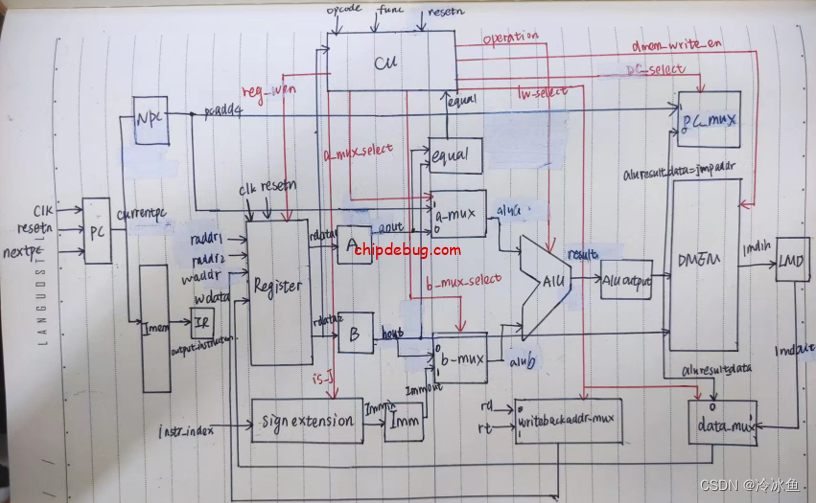 opcode
func
resetn
CU
operation
dmem_write_en
PC_select
lw_select
reg_wen
Npc
pcadd4
equal
equal
PC_mux
1
0
a_mux_select
aluresultdata=jmpaddr
clk resetn
clk
resetn
nextpc
PC
currentpc
raddr1
raddr2
waddr
wdata
Register
rdata1
A
aout
a-mux
1
0
alua
chipdebug.com
ALU
result
Aluoutput
DMEM
lmdin
LMD
lmdout
Imem
IR
output.instruction
rdata2
B
bout
b_mux_select
b-mux
0
1
alub
aluresultdata
is_J
Immout
instr_index
Sign extension
Immin
Imm
rd
rt
0
1
writebackaddr_mux
0
1
data_mux
LANGUO STYLE
CSDN @冷冰鱼